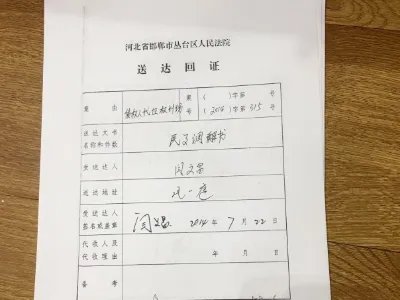 河北省邯郸市丛台区人民法院
送达回证
案由 债权人代位权纠纷 案号 ( )字第 号
(2014)字第315号
送达文书名称和件数 民事调解书
受送达人 闫文昌
送达地址 民一庭
受送达人签名或盖章 闫文昌 2014年7月22日
代收人及代收理由 年 月 日
备考